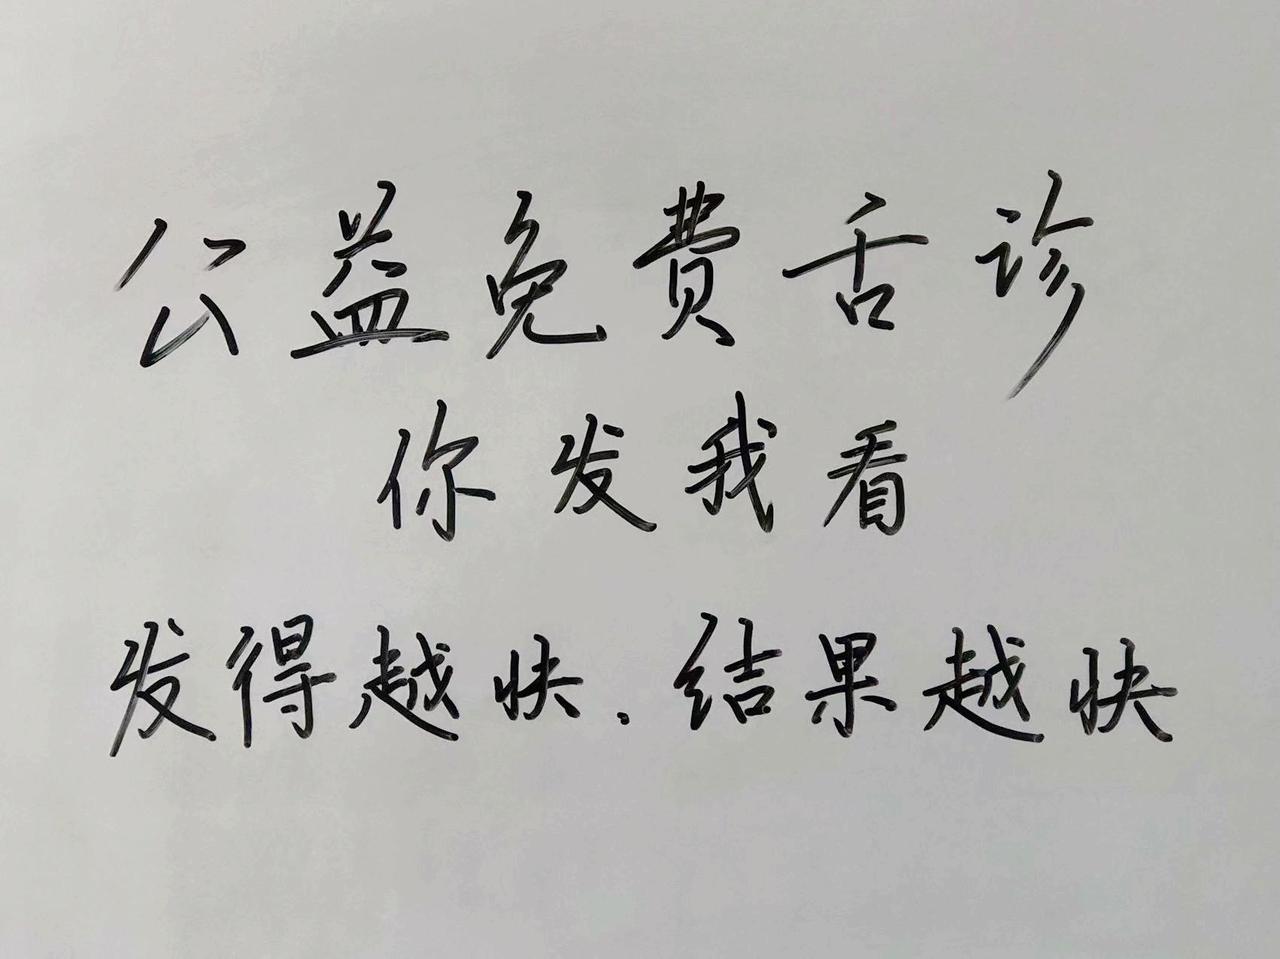 公益免费舌诊
你发我看
发得越快.结果越快